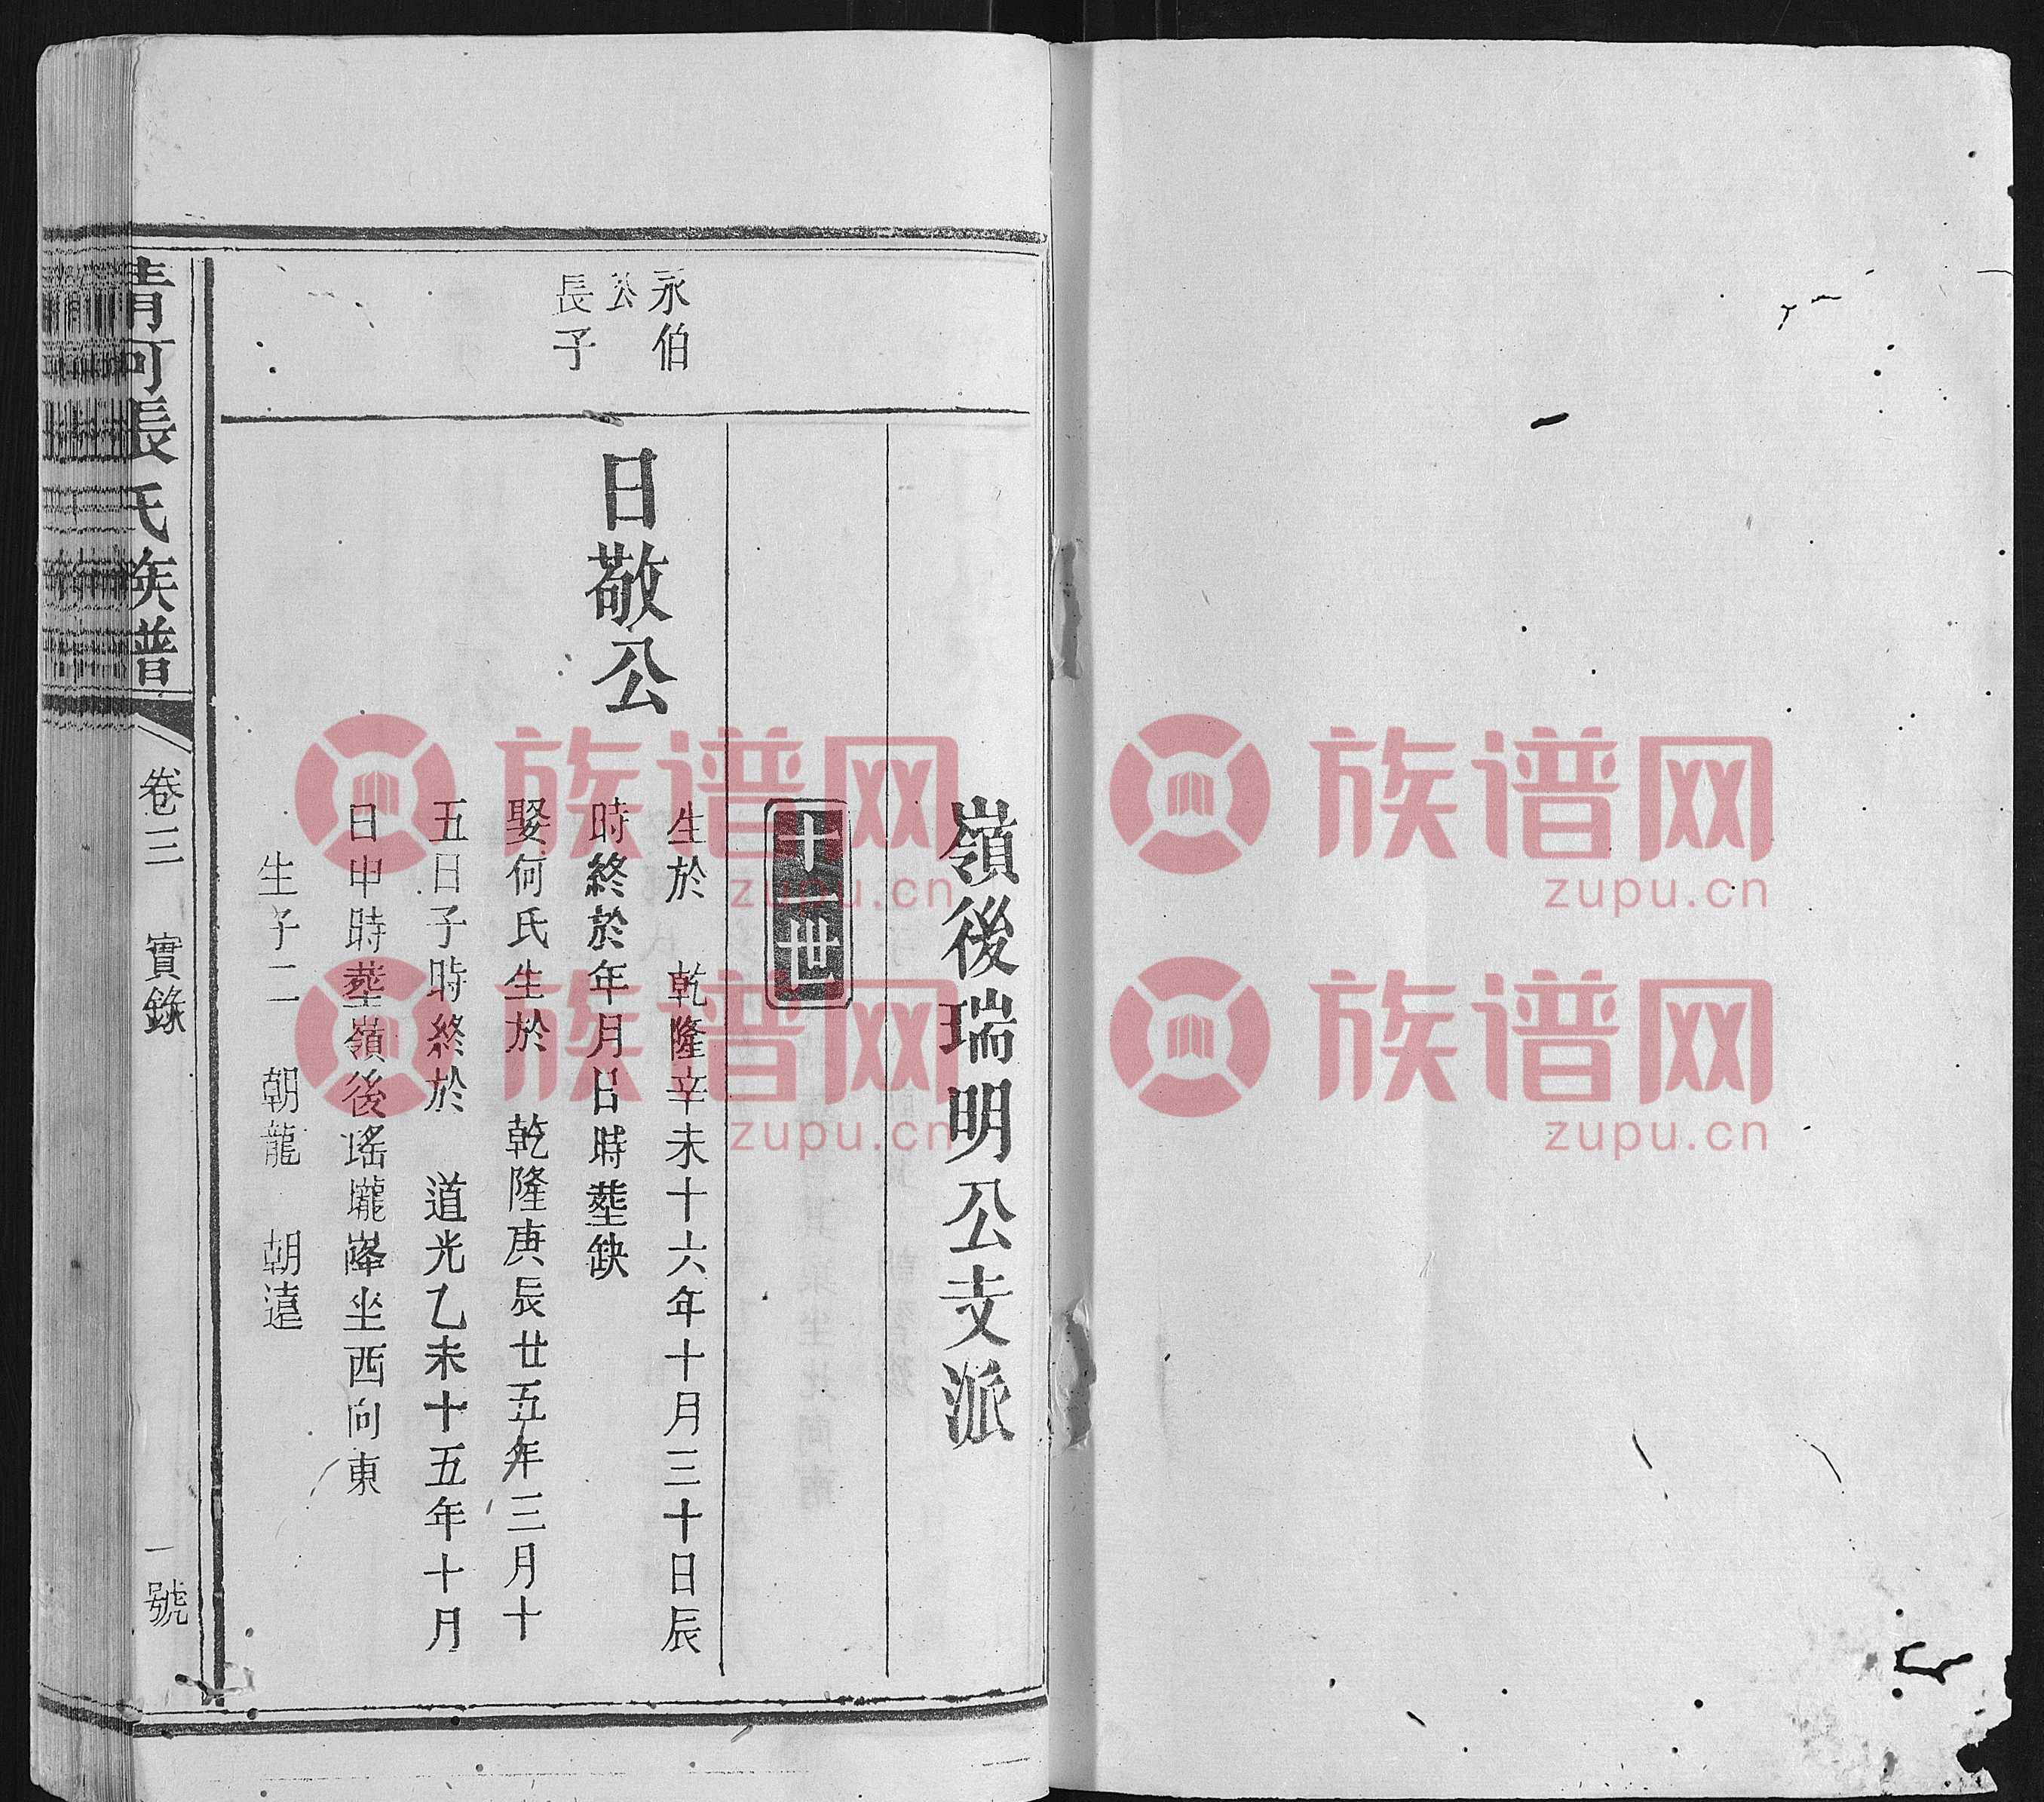 嶺後瑞明公支派
十一世
永伯
公
長子
日敬公
生於 乾隆辛未十六年十月三十日辰
時終於年月日時塟缺
娶何氏生於 乾隆庚辰廿五年三月十
五日子時終於 道光乙未十五年十月
日申時塟嶺後瑤壠峯坐西向東
生子二 朝龍 朝遠
清河張氏族譜
卷三 實錄
一號
族谱网
zupu.cn
族谱网
zupu.cn
族谱网
zupu.cn
族谱网
zupu.cn